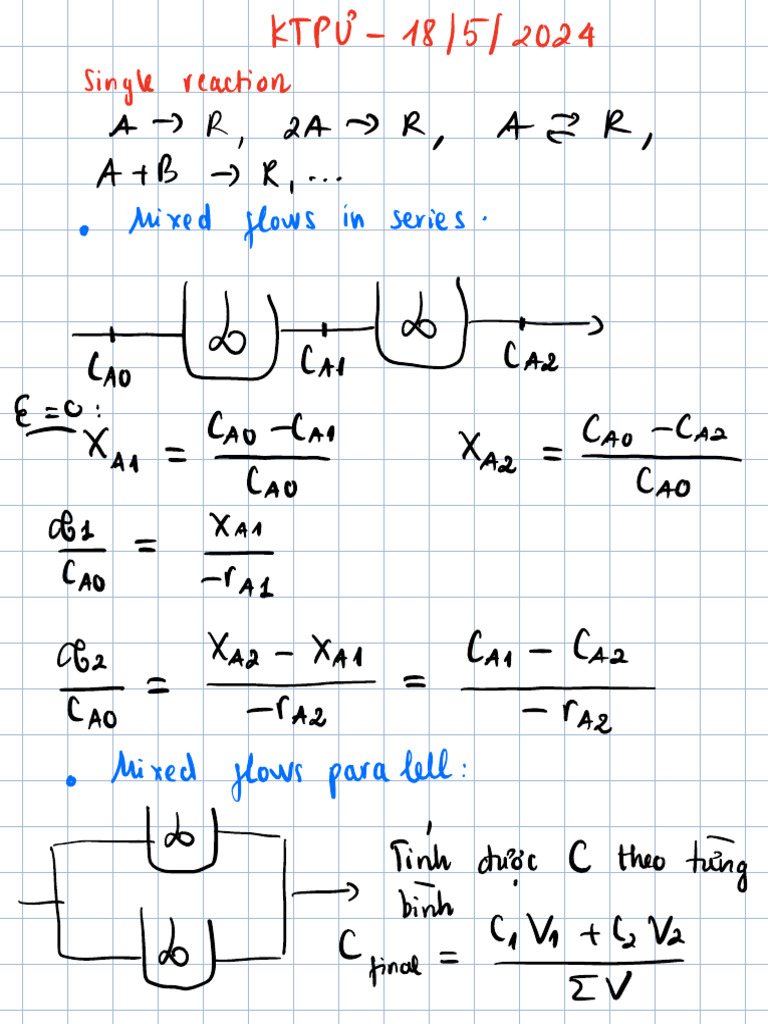 KTPƯ - 18/5/2024
Single reaction
A → R, 2A → R, A ⇄ R,
A + B → R, ...
• Mixed flows in series.
C_A0 C_A1 C_A2
ε = 0:
X_A1 = (C_A0 - C_A1)/C_A0 X_A2 = (C_A0 - C_A2)/C_A0
/C_A0 = X_A1/(-r_A1)
/C_A0 = (X_A2 - X_A1)/(-r_A2) = (C_A1 - C_A2)/(-r_A2)
• Mixed flows parallell:
Tính được C theo từng
bình
C_final = (C_1 V_1 + C_2 V_2)/ΣV